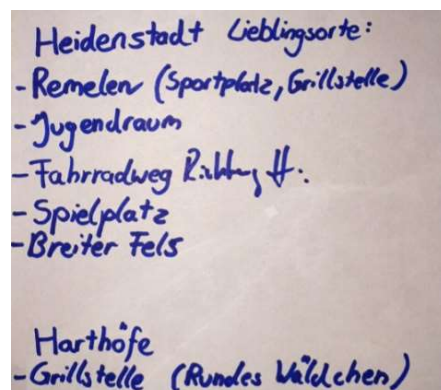 Heidenstadt Lieblingsorte:
- Remelen (Sportplatz, Grillstelle)
- Jugendraum
- Fahrradweg Richtung H.
- Spielplatz
- Breiter Fels
Harthöfe
- Grillstelle (Rundes Wäldchen)